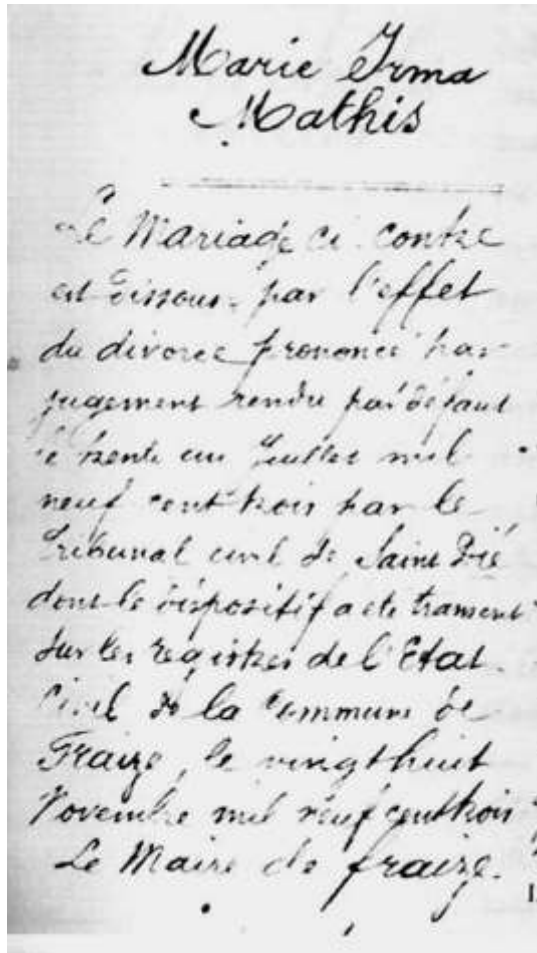 Marie Irma
Mathis
Le Mariage ci contre
est dissous par l'effet
du divorce prononcé par
jugement rendu par défaut
le trente un Juillet mil
neuf cent trois par le
Tribunal civil de Saint Dié
dont le dispositif a été transcrit
sur les registres de l'Etat
Civil de la Commune de
Fraize, le vingt huit
Novembre mil neuf cent trois
Le Maire de fraize.